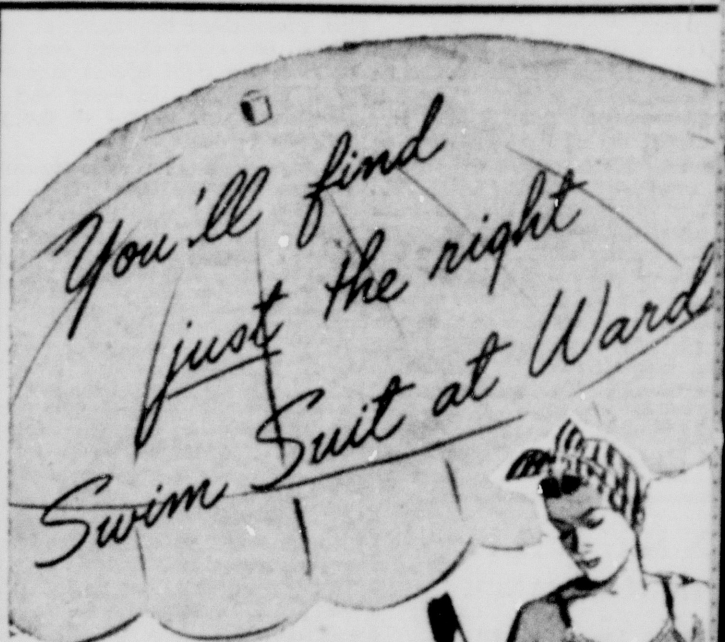 You'll find
just the right
Swim Suit at Wards